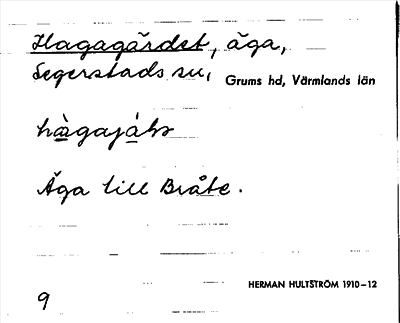 Hagagärdet, äga,
Segerstads sn, Grums hd, Värmlands län
Äga till Bråte.
HERMAN HULTSTRÖM 1910–12
9